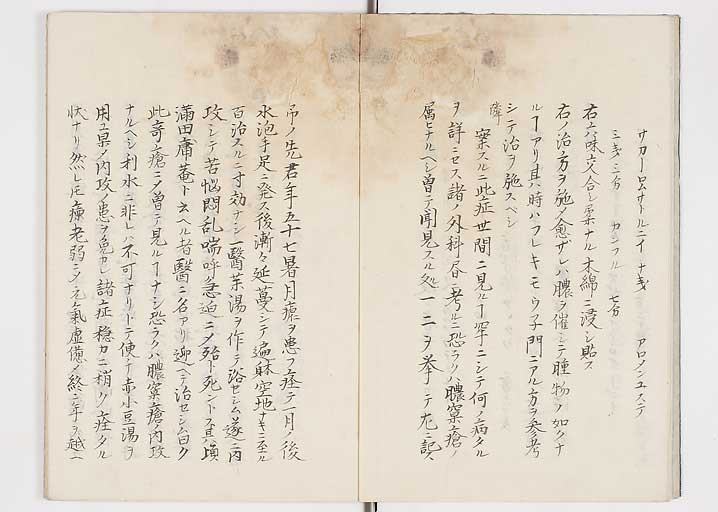 サカーロムサトルニイ 十戔 アロメンユステ
三戔三分 カンフル 七分
右六味交合シ柔ナル木綿ニ浸シ貼ス
右ノ治方ヲ施メ愈ザレハ膿ヲ催シテ腫物ノ如クナ
ルーアリ其時ハフレキモウ子門ニアル方ヲ参考
シテ治ヲ施スベシ
障 案スルニ此症世間ニ見ルー罕ニシテ何ノ病タル
ヲ詳ニセス諸ノ外科書ニ考ルニ恐ラクハ膿窠瘡ノ
属ヒナルヘシ曽テ聞見スル処一二ヲ挙テ左ニ記ス
ノ先君年五十七暑月瘧ヲ患フ痊テ一月ノ後
水泡手足ニ発ス後漸々延蔓シテ遍躰空地ナキニ至ル
百治スルニ寸効ナシ一醫薬湯ヲ作テ浴セシム遂ニ内
攻シテ苦悩悶乱喘呼急迫ニメ殆ト死ントス其頃
満田庸菴ト云ヘル者醫ニ名アリ迎ヘテ治セシム曰ク
此奇瘡ニメ曽テ見ルーナシ恐ラクハ膿窠瘡ノ内攻
ナルヘシ利水ニ非レハ不可ナリトテ便チ赤小豆湯ヲ
用ユ果メ内攻ノ患ヲ免カレ諸症穏カニ稍ク痊タル
状ナリ然レ𪜈老弱ニメ元氣虚憊メ終ニ年ヲ越一